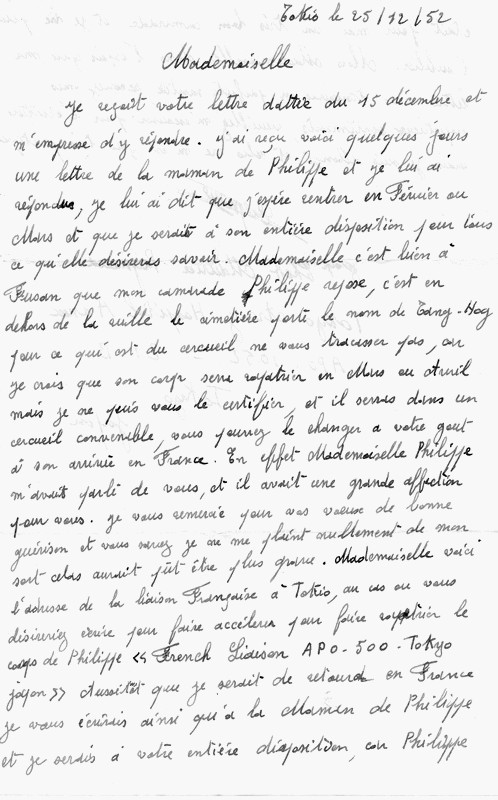 Tokio le 25/12/52
Mademoiselle
je reçoit votre lettre dattée du 15 décembre et
m'empresse d'y répondre. j'ai reçu voici quelques jours
une lettre de la maman de Philippe et je lui ai
répondue, je lui ai dit que j'espère rentrer en Février ou
Mars et que je serait à son entière disposition pour tous
ce qu'elle désireras savoir. Mademoiselle c'est bien à
Fusan que mon camarade Philippe repose, c'est en
dehors de la ville le cimetière porte le nom de Tang-Hog
pour ce qui est du cercueil ne vous tracasser pas, car
je crois que son corp sera rapatrier en Mars ou Avril
mais je ne puis vous le certifier, et il seras dans un
cercueil convenable, vous pourrez le changer a votre gout
à son arrivée en France. En effet Mademoiselle Philippe
m'avait parlé de vous, et il avait une grande affection
pour vous. je vous remercie pour vos voeux de bonne
guérison et vous savez je ne me plaint nullement de mon
sort celas aurait pût être plus grave. Mademoiselle voici
l'adresse de la liaison Française à Tokio, au cas ou vous
désireriez écrire pour faire accélérer pour faire rapatrier le
corps de Philippe << French Liaison APO-500-Tokyo
japon >> Aussitôt que je serait de retour en France
je vous écrirais ainsi qu'a la Maman de Philippe
et je serais à votre entière disposition, car Philippe